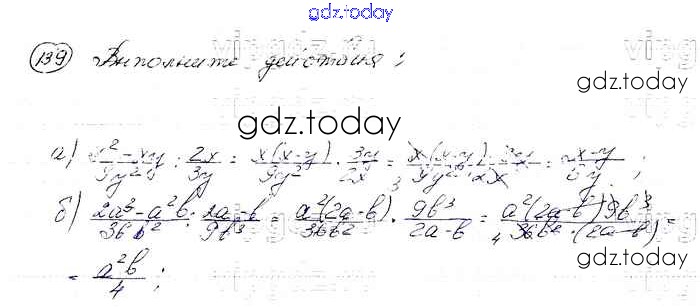 gdz.today
139 Выполнить действия:
gdz.today
gdz.today
а) x² - xy / 9y² : 2x / 3y = x(x-y) / 9y² · 3y / 2x = x(x-y) · 3y / 9y² · 2x = x-y / 6y ;
б) 2a³ - a²b / 36b² : 2a-b / 9b³ = a²(2a-b) / 36b² · 9b³ / 2a-b = a²(2a-b) 9b³ / 4 36b² · (2a-b) =
= a²b / 4 ;
gdz.today